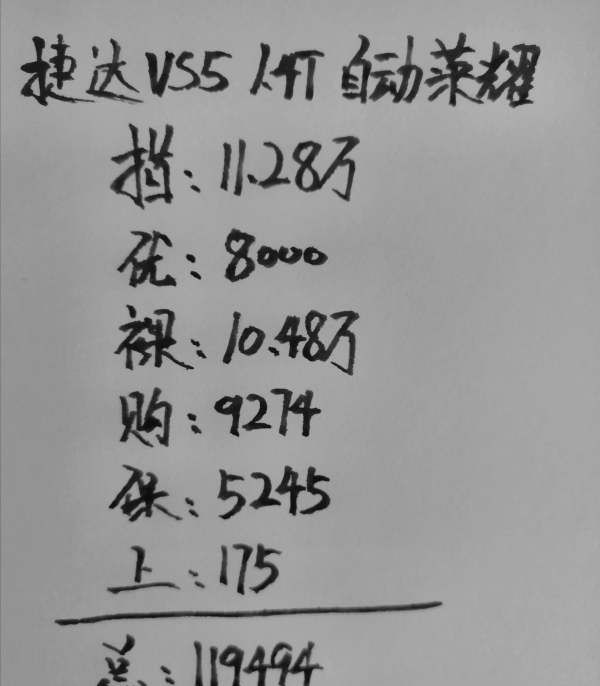 捷达VS5 1.4T 自动荣耀
指：11.28万
优：8000
裸：10.48万
购：9274
保：5245
上：175
总：119494